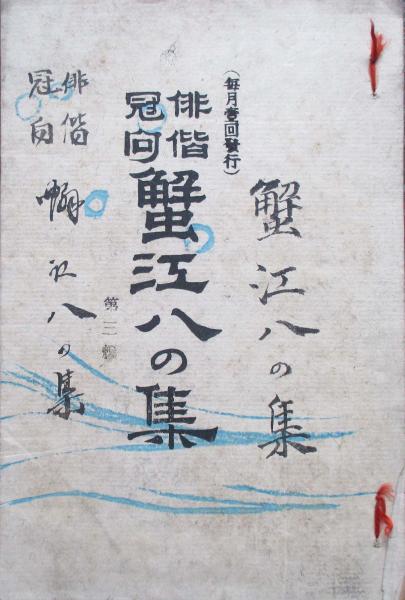 (毎月壹回發行)
俳偕
冠句
蟹江八の集
第三輯
蟹江八の集
俳偕
冠句
八の集